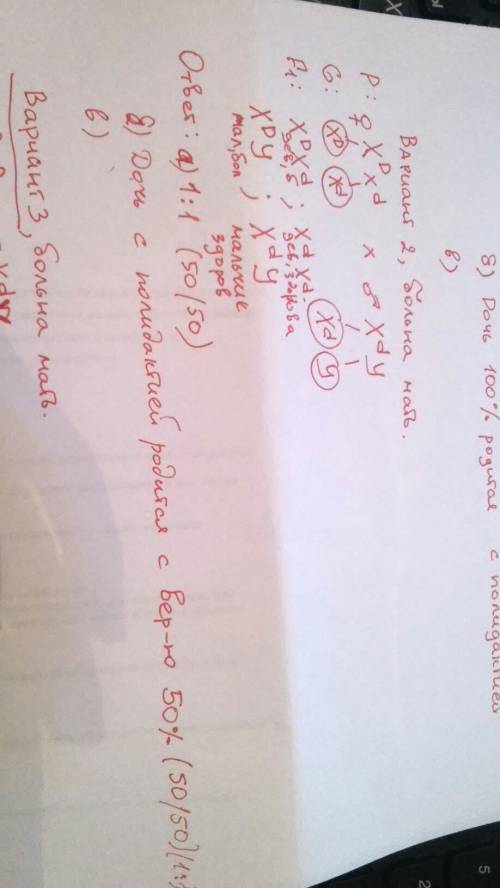 8) Дочь 100% родится с полидактией
в)
Вариант 2, больна мать.
P: ♀ XᴰXᵈ x ♂ XᵈY
G: Xᴰ Xᵈ Xᵈ Y
F₁: XᴰXᵈ ; XᵈXᵈ.
дев, б дев, здорова
XᴰY ; XᵈY
мал, бол мальчик
здоров
Ответ: а) 1:1 (50/50)
8) Дочь с полидактией родится с вер-ю 50% (50/50)(1:1)
в)
Вариант 3, больна мать.